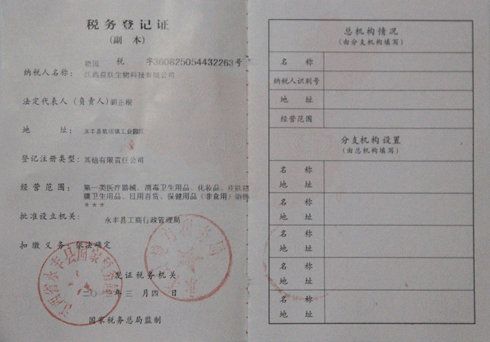 税务登记证
(副 本)
税 字360825054432263号
纳税人名称: 江西
生物科技有限公司
法定代表人(负责人)
地 址: 永丰县
工业园
登记注册类型: 其他有限责任公司
经营范围: 第一类医疗器械、消毒卫生用品、化妆品、
卫生用品、日用百货、保健用品(非食用)销售
***
批准设立机关: 永丰县工商行政管理局
扣缴义务: 依法确定
发证税务机关
二〇一 年 三 月 四 日
国家税务总局监制
总机构情况
(由分支机构填写)
名 称
纳税人识别号
地 址
经营范围
分支机构设置
(由总机构填写)
名 称
地 址
名 称
地 址
名 称
地 址
名 称
地 址
名 称
地 址